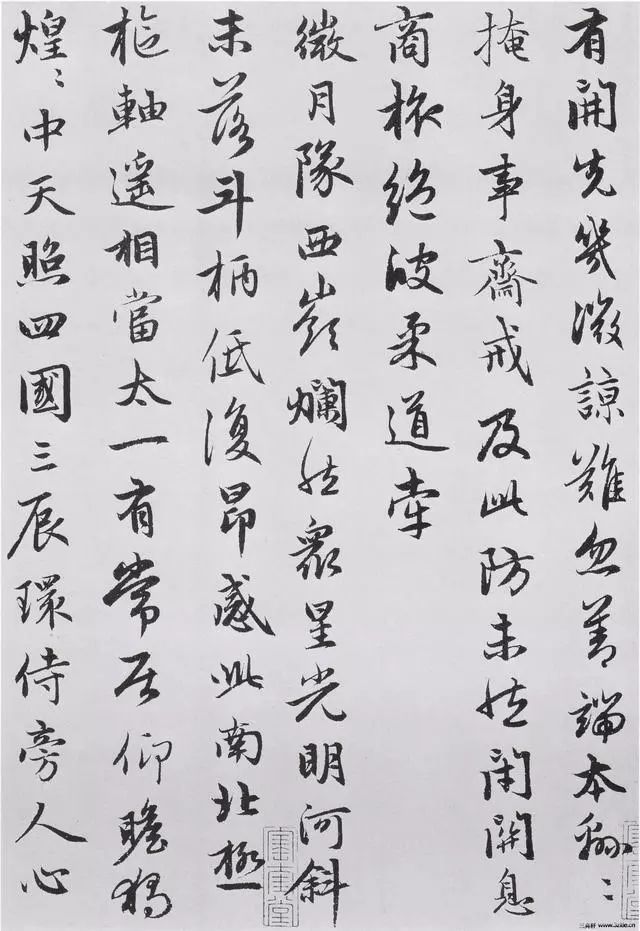 有開先幾微諒難忽善端本綿〻
掩身事齋戒及此防未然閉關息
商旅絕彼柔道牽
微月隊西嶺爛然衆星光明河斜
未落斗柄低復昂感此南北極
樞軸遥相當太一有常居仰瞻獨
煌〻中天照四國三辰環侍旁人心